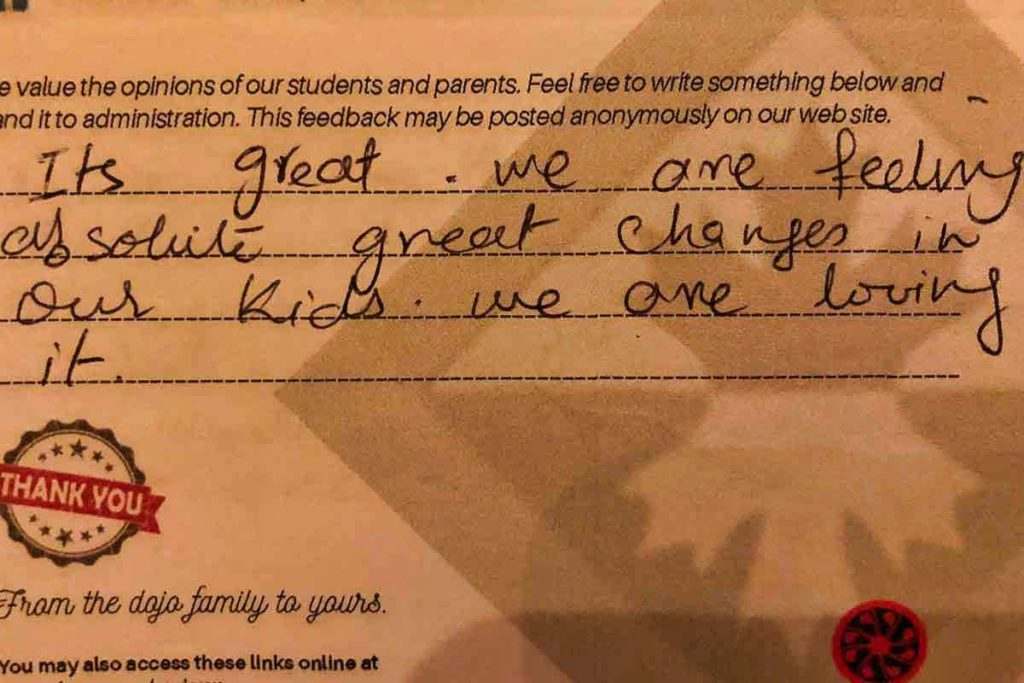 e value the opinions of our students and parents. Feel free to write something below and
nd it to administration. This feedback may be posted anonymously on our web site.
Its great. we are feeling
absolute great changes in
our kids. we are loving
it.
THANK YOU
From the dojo family to yours.
You may also access these links online at